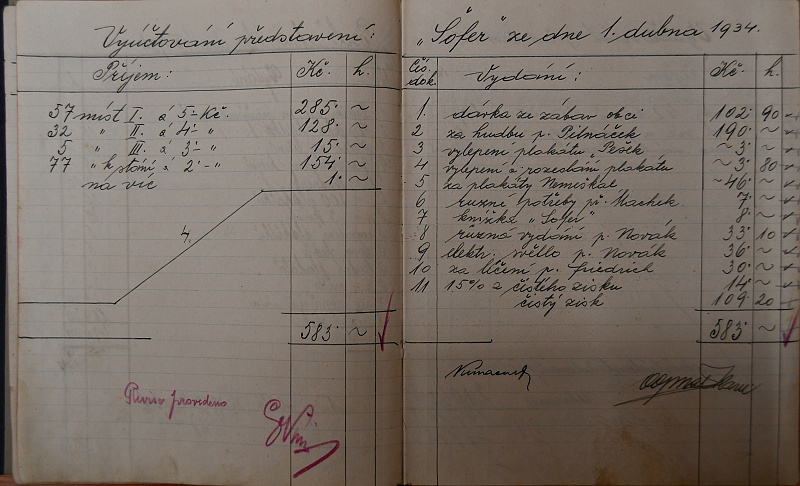 Vyúčtování představení:
Příjem: Kč. h.
57 míst I. á 5·- Kč. 285· ~
32 " II. á 4·- " 128· ~
5 " III. á 3·- " 15· ~
77 " k stání á 2·- " 154· ~
na víc 1· ~
4.
583· ~
Revise provedena
"Šofér" ze dne 1. dubna 1934.
Čís. dok Vydání: Kč. h.
1. dávka ze zábav obci 102· 90
2 za hudbu p. Pilnáček 190· ~
3 vylepení plakátů "Pešek ~3· ~
4 vylepení a rozeslání plakátů ~3· 80
5 za plakáty Nemeškal ~46· ~
6 různé potřeby př. Machek 7· ~
7 knížka "Šofér" 8· ~
8 různá vydání p. Novák 33· 10
9 elektr. světlo p. Novák 36· ~
10 za líčení p. Friedrich 30· ~
11 15% z čistého zisku 14· ~
čistý zisk 109· 20
583· ~